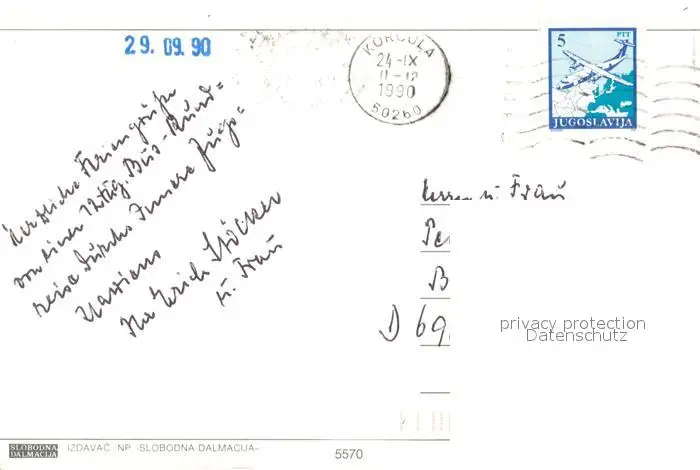 29. 09. 90
KORČULA
24-IX
11-12
1990
50260
5
PTT
JUGOSLAVIJA
Herzliche Feriengrüße
von einer 12täg. Bus-Rund=
reise durchs Innere Jugo=
slawiens
Ihr Erich Stöcker
u. Frau
Herrn u. Frau
Pe
B
D 69
privacy protection
Datenschutz
SLOBODNA DALMACIJA
IZDAVAČ NP «SLOBODNA DALMACIJA»
5570